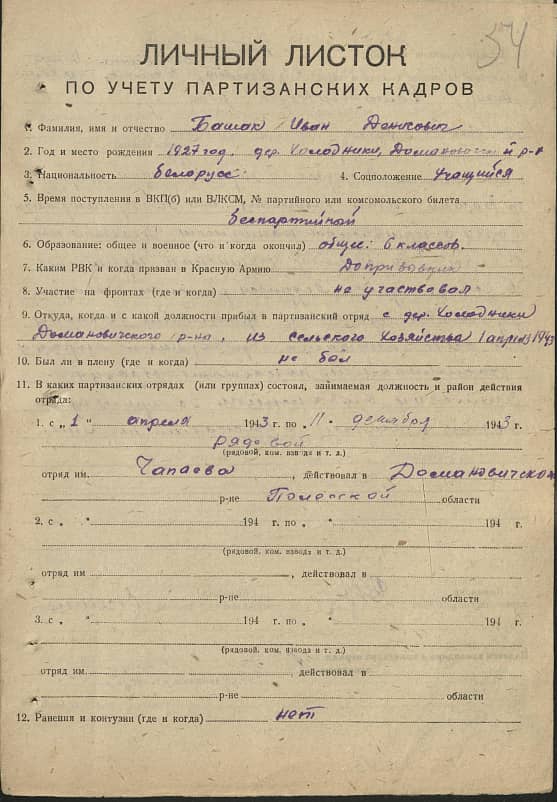 34
ЛИЧНЫЙ ЛИСТОК
ПО УЧЕТУ ПАРТИЗАНСКИХ КАДРОВ
1. Фамилия, имя и отчество Башак Иван Денисович
2. Год и место рождения 1927 год. дер. Холодники, Домановичский р-н
3. Национальность белорусс 4. Соцположение Учащийся
5. Время поступления в ВКП(б) или ВЛКСМ, № партийного или комсомольского билета
беспартийный
6. Образование: общее и военное (что и когда окончил) общее: 6 классов.
7. Каким РВК и когда призван в Красную Армию Допризывник
8. Участие на фронтах (где и когда) не участвовал
9. Откуда, когда и с какой должности прибыл в партизанский отряд с дер. Холодники
Домановичского р-на, из сельского хозяйства 1 апреля 1943
10. Был ли в плену (где и когда) не был
11. В каких партизанских отрядах (или группах) состоял, занимаемая должность и район действия
отряда:
1. с „ 1 " апреля 1943 г. по „ 11 " декабря 1943 г.
рядовой
(рядовой, ком. взвода и т. д.)
отряд им. Чапаева, действовал в Домановичском
р-не Полесской области
2. с „ " 194 г. по „ " 194 г.
(рядовой, ком. взвода и т. д.)
отряд им , действовал в
р-не области
3. с „ " 194 г. по „ " 194 г.
(рядовой, ком. взвода и т. д.)
отряд им. , действовал в
р-не области
12. Ранения и контузии (где и когда) нет